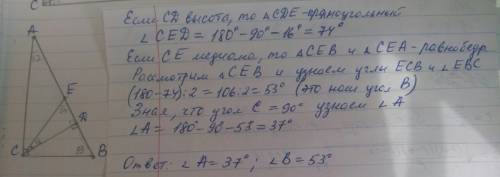 Если CD высота, то △CDE-прямоугольный
∠CED = 180°-90°-16° = 74°
Если CE медиана, то △CEB и △CEA-равнобедр.
Рассмотрим △CEB и узнаем углы ECB и ∠EBC
(180-74):2 = 106:2 = 53° (это наш угол B)
Зная, что угол C = 90° узнаем ∠A
∠A = 180°-90-53 = 37°
Ответ: ∠A = 37°; ∠B = 53°
A
E
C
B